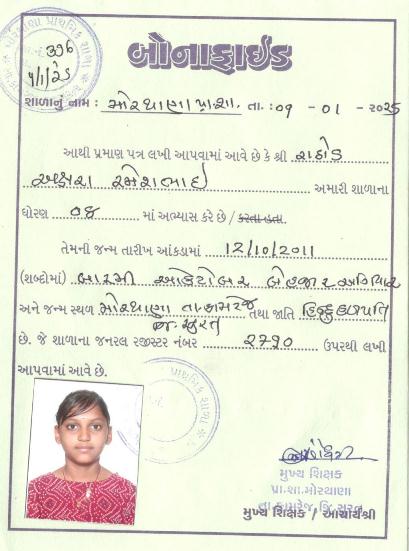 બોનાફાઇડ
શાળાનું નામ : મોરથાણા પ્રા.શા. તા. : 09 - 01 - ૨૦25
આથી પ્રમાણ પત્ર લખી આપવામાં આવે છે કે શ્રી રાઠોડ
અક્ષરા રમેશભાઇ અમારી શાળાના
ધોરણ 08 માં અભ્યાસ કરે છે / કરતા હતા.
તેમની જન્મ તારીખ આંકડામાં 12/10/2011
(શબ્દોમાં) બારમી ઓક્ટોબર બેહજાર અગિયાર
અને જન્મ સ્થળ મોરથાણા તા.કામરેજ તથા જાતિ હિન્દુ હળપતિ
જિ.સુરત
છે. જે શાળાના જનરલ રજીસ્ટર નંબર ૨૭૧૦ ઉપરથી લખી
આપવામાં આવે છે.
મુખ્ય શિક્ષક
પ્રા.શા.મોરથાણા
તા.કામરેજ જિ.સુરત
મુખ્ય શિક્ષક / આચાર્યશ્રી